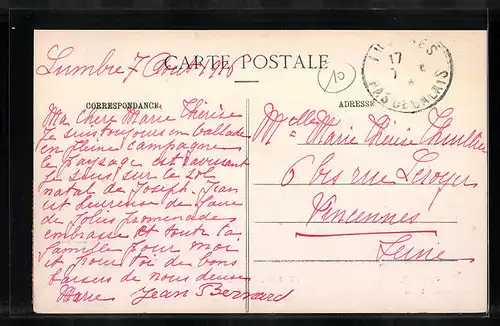 CARTE POSTALE
Lumbre 7 Août 1916
10
17
PAS DE CALAIS
CORRESPONDANCE
ADRESSE
Ma chère Marie Thérèse
Je suis toujours en ballade
en pleine campagne
le paysage est ravissant
je suis sur le sol
natal de Joseph. Jean
est heureuse de faire
de jolies promenades
embrasse toute la
famille pour moi
et pour toi de bons
baisers de nous deux
Marie Jean Bernard
Melle Marie Thérèse
6 bis rue Leroyer
Vincennes
Seine